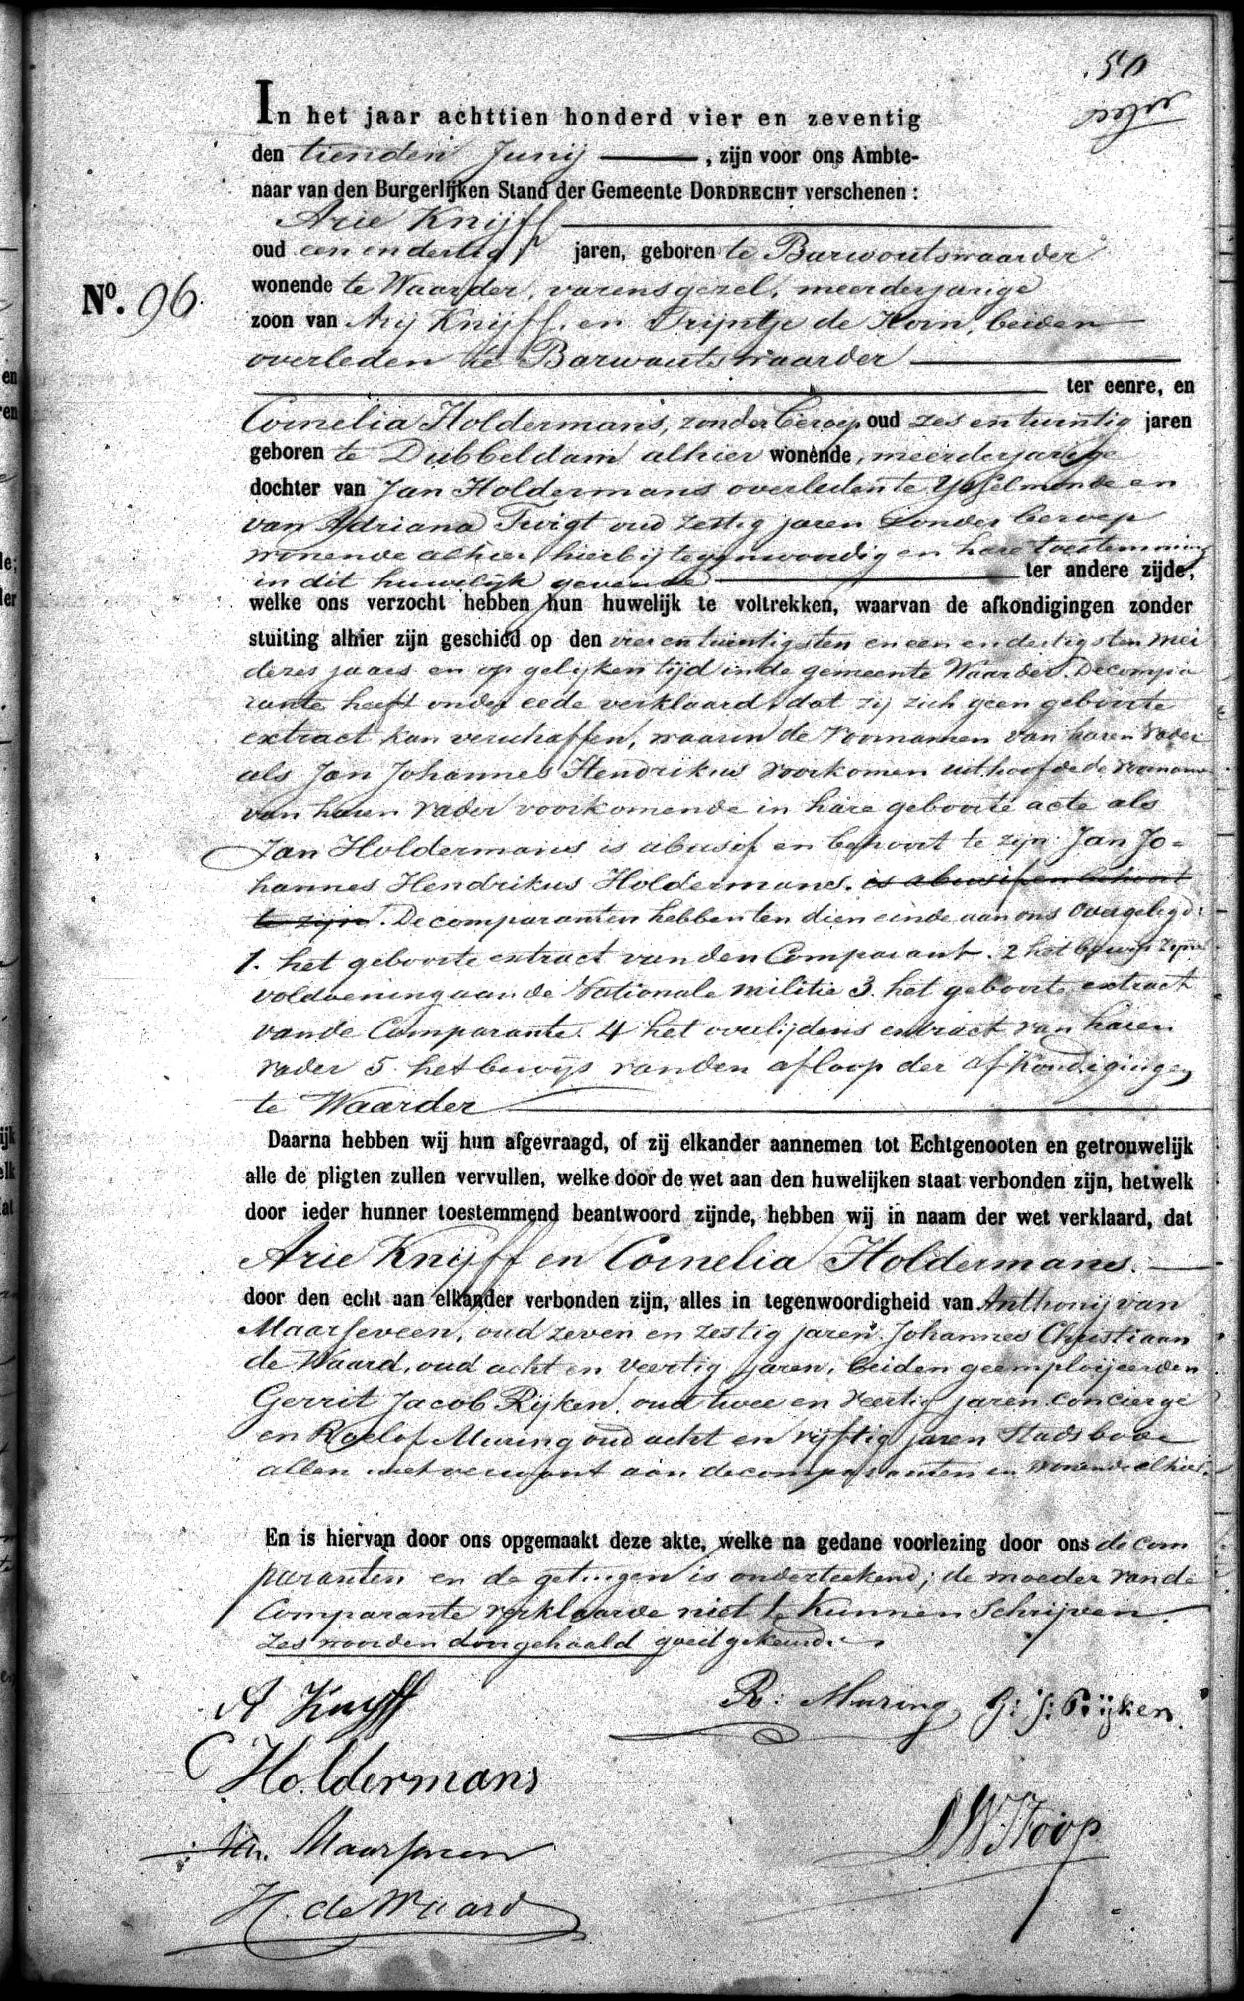 50
In het jaar achttien honderd vier en zeventig
den tienden Junij, zijn voor ons Ambte-
naar van den Burgerlijken Stand der Gemeente DORDRECHT verschenen:
Arie Knijff
oud een en dertig jaren, geboren te Barwoutswaarder
No. 96.
wonende te Waarder, varensgezel, meerderjarige
zoon van Arij Knijff, en Trijntje de Kom, beiden
overleden te Barwoutswaarder
ter eenre, en
Cornelia Holdermans, zonder beroep oud zes en twintig jaren
geboren te Dubbeldam alhier wonende, meerderjarige
dochter van Jan Holdermans overleden te Ysselmonde en
van Adriana Twigt oud zestig jaren zonder beroep
wonende alhier, hierbij tegenwoordig en hare toestemming
in dit huwelijk gevende ter andere zijde,
welke ons verzocht hebben hun huwelijk te voltrekken, waarvan de afkondigingen zonder
stuiting alhier zijn geschied op den vier en twintigsten en een en dertigsten Mei
dezes jaars en op gelijken tijd in de gemeente Waarder. De compa
rante heeft onder eede verklaard, dat zij zich geen geboorte
extract kan verschaffen, waarin de voornamen van haren vader
als Jan Johannes Hendrikus voorkomen uithoofde de voorname
van haren vader voorkomende in hare geboorte acte als
Jan Holdermans is abusif en behoort te zijn Jan Jo=
hannes Hendrikus Holdermans. is abusif en behoort
te zijn. De comparanten hebben ten dien einde aan ons overgelegd:
1. het geboorte extract van den Comparant. 2 het bewijs zijner
voldoening aan de Nationale militie 3. het geboorte extract
van de Comparante. 4 het overlijdens extract van haren
vader 5. het bewijs van den afloop der afkondigingen
te Waarder
Daarna hebben wij hun afgevraagd, of zij elkander aannemen tot Echtgenooten en getrouwelijk
alle de pligten zullen vervullen, welke door de wet aan den huwelijken staat verbonden zijn, hetwelk
door ieder hunner toestemmend beantwoord zijnde, hebben wij in naam der wet verklaard, dat
Arie Knijff en Cornelia Holdermans.
door den echt aan elkander verbonden zijn, alles in tegenwoordigheid van Anthonij van
Maarseveen, oud zeven en zestig jaren. Johannes Christiaan
de Waard, oud acht en veertig jaren, beiden geemploijeerden
Gerrit Jacob Rijken, oud twee en veertig jaren concierge
en Roelof Muring oud acht en vijftig jaren Stadsbode
allen niet verwant aan de comparanten en wonende alhier.
En is hiervan door ons opgemaakt deze akte, welke na gedane voorlezing door ons de com
paranten en de getuigen is onderteekend; de moeder van de
Comparante verklaarde niet te kunnen Schrijven.
Zes woorden doorgehaald goedgekeurd.
A Knijff
R: Muring G: J: Rijken
C Holdermans
Maarseveen
de Waard
Stoop